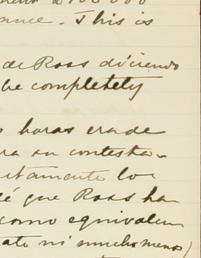 $100000
ance. This is
de Ross diciendo
be completely
horas era de
ra su contesta-
tamente lo
é que Ross ha
como equivalen
ato ni mucho menos)